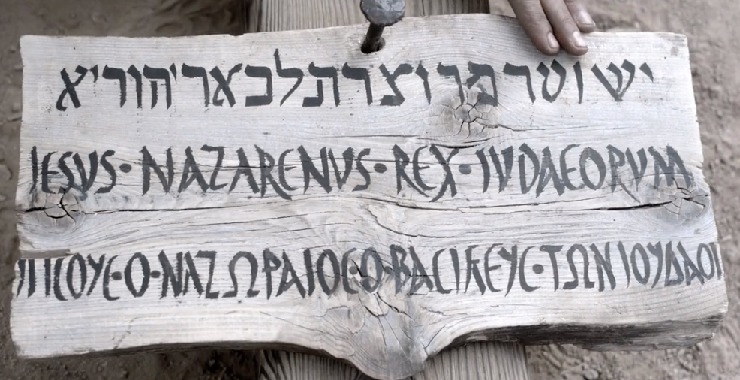 ישוטר מרוצרתלכאר יהוריא
IESUS·NAZARENVS·REX·IVDAEORVM
ΙΗϹΟΥϹ·Ο·ΝΑΖΩΡΑΙΟϹ·Ο·ΒΑϹΙΛΕΥϹ·ΤΩΝ ΙΟΥΔΑΟΙ